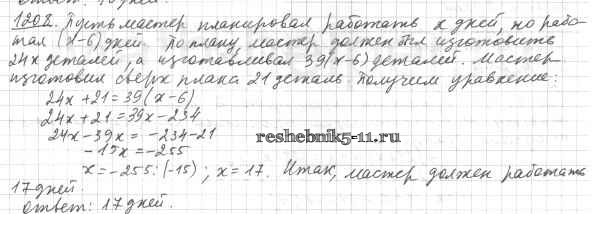 1202. Пусть мастер планировал работать x дней, но рабо-
тал (x-6) дней. По плану мастер должен был изготовить
24x деталей, а изготавливал 39(x-6) деталей. Мастер
изготовил сверх плана 21 деталь. Получим уравнение:
24x+21=39(x-6)
24x+21=39x-234
24x-39x=-234-21
-15x=-255
x=-255:(-15); x=17. Итак, мастер должен работать
17 дней.
Ответ: 17 дней.
reshebnik5-11.ru